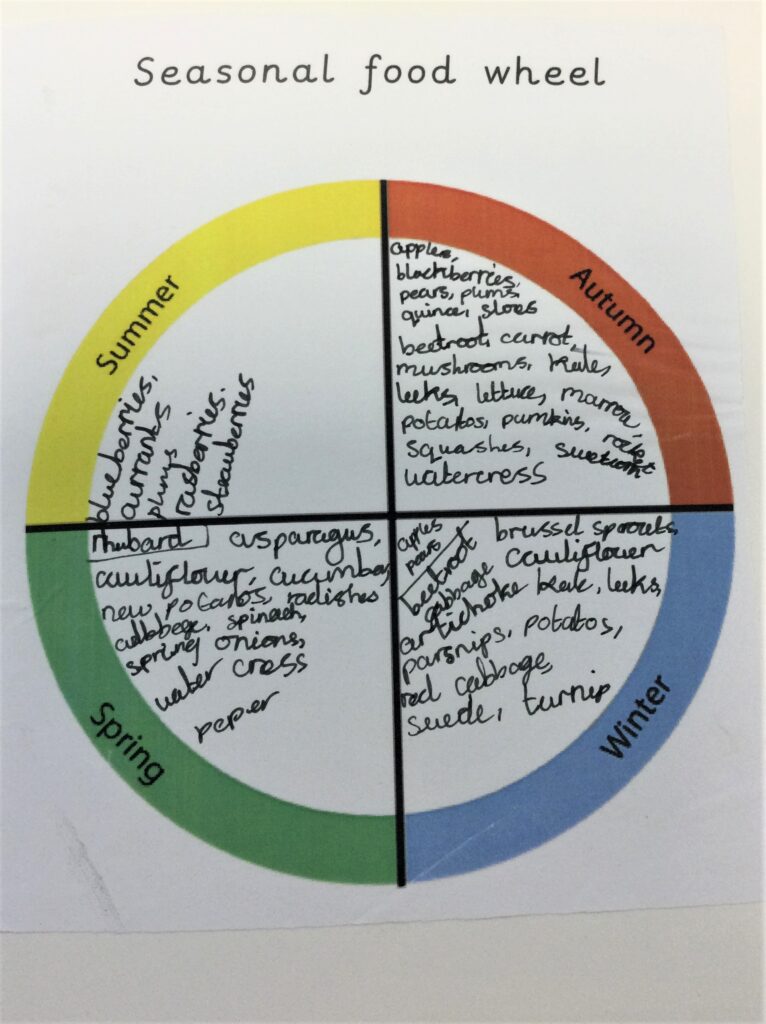 Seasonal food wheel
Summer
blueberries,
currants
plums
rasberries.
strawberries
Autumn
apples,
blackberries,
pears, plums,
quince, sloes
beetroot, carrot,
mushrooms, kale,
leeks, lettuce, marrow,
potatos, pumkins, rocket
squashes, sweetcorn
watercress
rhubard asparagus,
cauliflower, cucumber,
new potatos, radishes
cabbage, spinach,
spring onions,
water cress
peper
Spring
apples
pears
beetroot brussel sprouts,
cabbage cauliflower
artichoke kale, leeks,
parsnips, potatos,
red cabbage,
suede, turnip
Winter